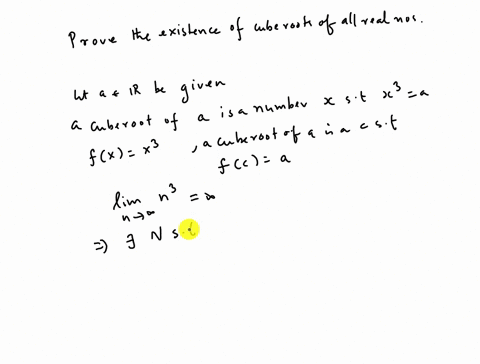 Prove the existence of cuberoots of all real nos.
let a ∈ ℝ be given
a cuberoot of a is a number x s.t x³ = a
f(x) = x³ , a cuberoot of a is a c s.t
f(c) = a
lim n³ = ∞
n→∞
⇒ ∃ N s.t